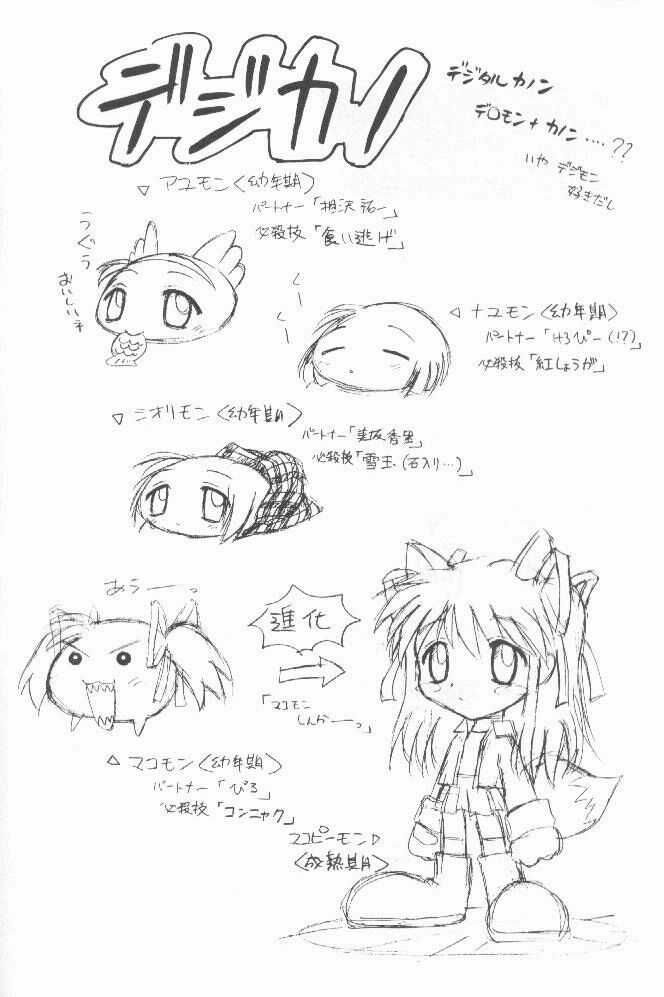 デジカノ
デジタルカノン
デ○モン+カノン‥‥??
いや デジモン
好きだし
▽アユモン〈幼年期〉
パートナー「相沢祐一」
必殺技「食い逃げ」
うぐぅ
おいしいネ
くー
くー
◁ナユモン〈幼年期〉
パートナー「けろぴー(!?)」
必殺技「紅しょうが」
▽シオリモン〈幼年期〉
パートナー「美坂香里」
必殺技「雪玉(石入り…)」
あぅーっ
進化
「マコモン
しんかーっ」
△マコモン〈幼年期〉
パートナー「ぴろ」
必殺技「コンニャク」
マコピーモン▷
〈成熟期〉